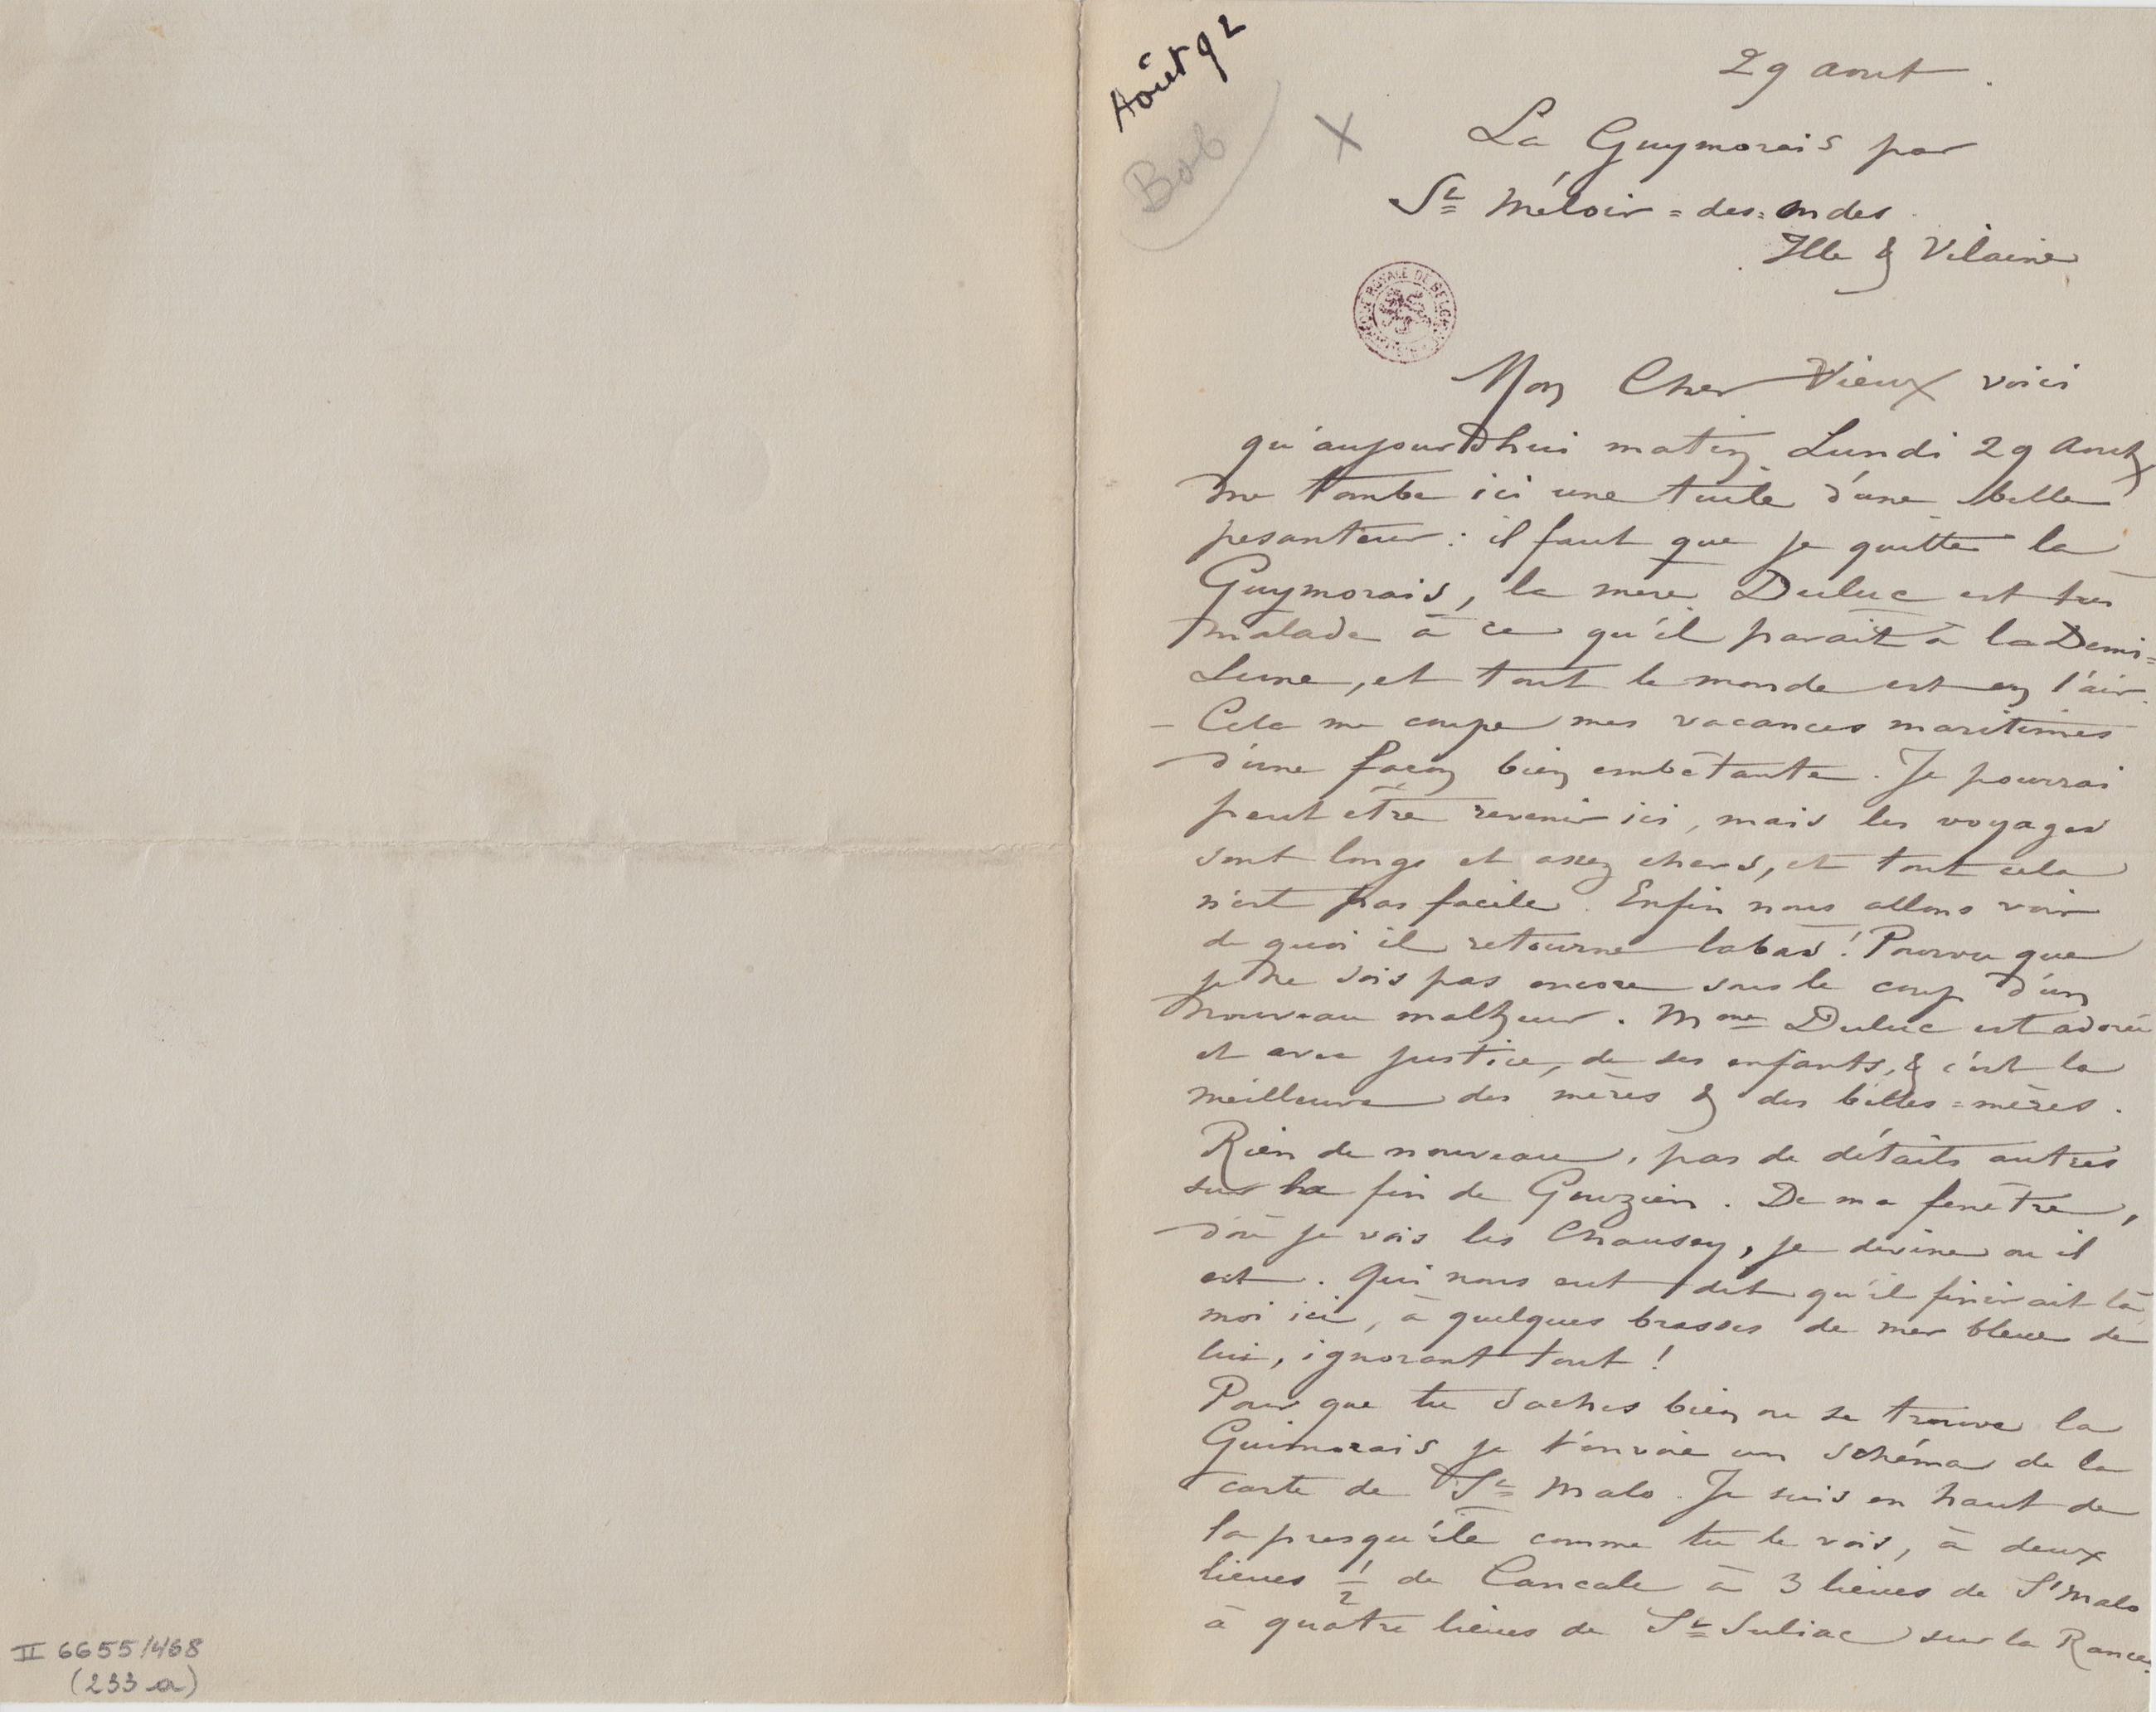 Août 92
Bob
X
29 aout.
La Guymorais par
St Méloir=des=Ondes.
Ille & Vilaine
BIBLIOTHÈQUE ROYALE DE BELGIQUE
Mon Cher Vieux voici
qu'aujourd'hui matin Lundi 29 Aout,
me tombe ici une tuile d'une belle
pesanteur : il faut que je quitte la
Guymorais, la mère Duluc est très
malade à ce qu'il parait à la Demi=
Lune, et tout le monde est en l'air.
– Cela me coupe mes vacances maritimes
d'une façon bien embêtante. Je pourrai
peut être revenir ici, mais les voyages
sont longs et assez chers, et tout cela
n'est pas facile. Enfin nous allons voir
de quoi il retourne labas! Pourvu que
je ne sois pas encore sous le coup d'un
nouveau malheur. Mme Duluc est adorée
et avec justice, de ses enfants, & c'est la
meilleure des mères & des belles=mères.
Rien de nouveau, pas de détails autres
sur la fin de Gouzien. De ma fenêtre,
d'où je vois les Chausey, je devine ou il
est. Qui nous eut dit qu'il finirait là
moi ici, à quelques brasses de mer bleue de
lui, ignorant tout !
Pour que tu saches bien ou se trouve la
Guimorais je t'envoie un schéma de la
carte de St Malo. Je suis en haut de
la presqu'île comme tu le vois, à deux
lieues 1/2 de Cancale à 3 lieues de St Malo
à quatre lieues de St Suliac sur la Rance.
II 6655/468
(233 a)